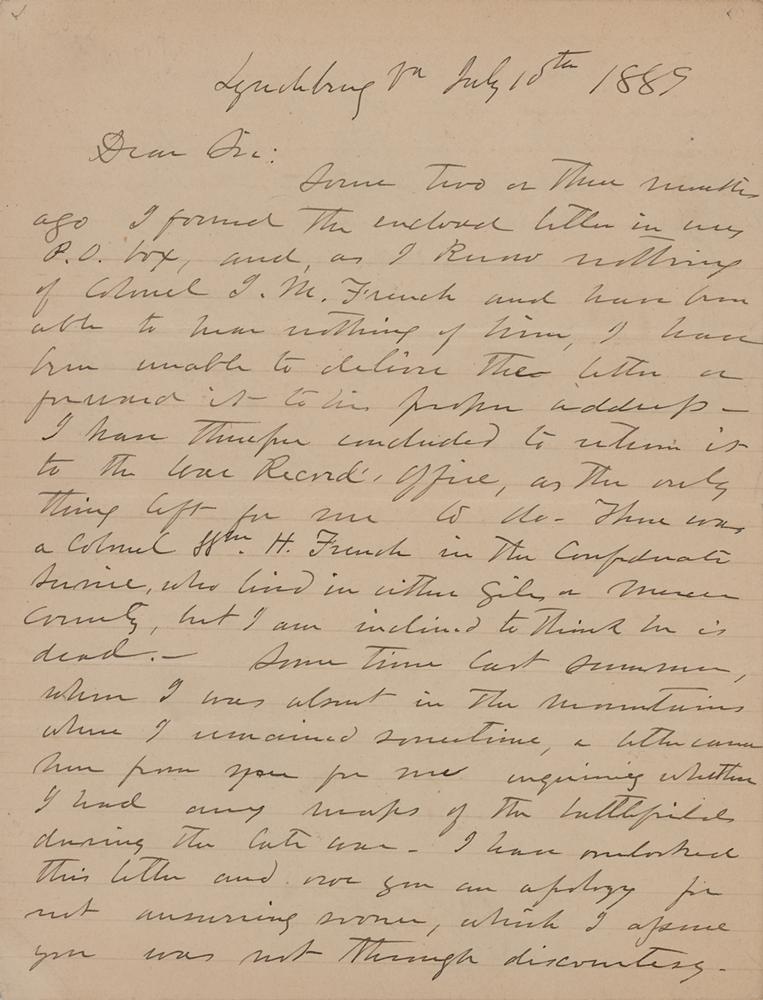 Lynchburg Va July 10th 1889
Dear Sir:
Some two or three months
ago I found the enclosed letter in my
P.O. box, and, as I know nothing
of Colonel J. M. French and have been
able to hear nothing of him, I have
been unable to deliver the letter or
forward it to his proper address –
I have therefore concluded to return it
to the War Records Office, as the only
thing left for me to do – There was
a Colonel Wm. H. French in the Confederate
Service, who lived in either Giles or Mercer
County, but I am inclined to think he is
dead. – Some time last summer,
when I was absent in the mountains
where I remained sometime, a letter came
here from you for me inquiring whether
I had any maps of the battlefields
during the late war – I have overlooked
this letter and owe you an apology for
not answering sooner, which I assure
you was not through discourtesy –